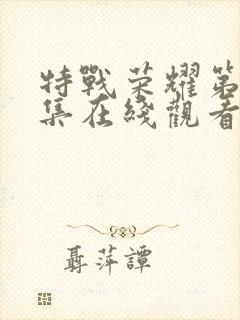 特戰荣耀第
集在綫觀看
聶萍譚